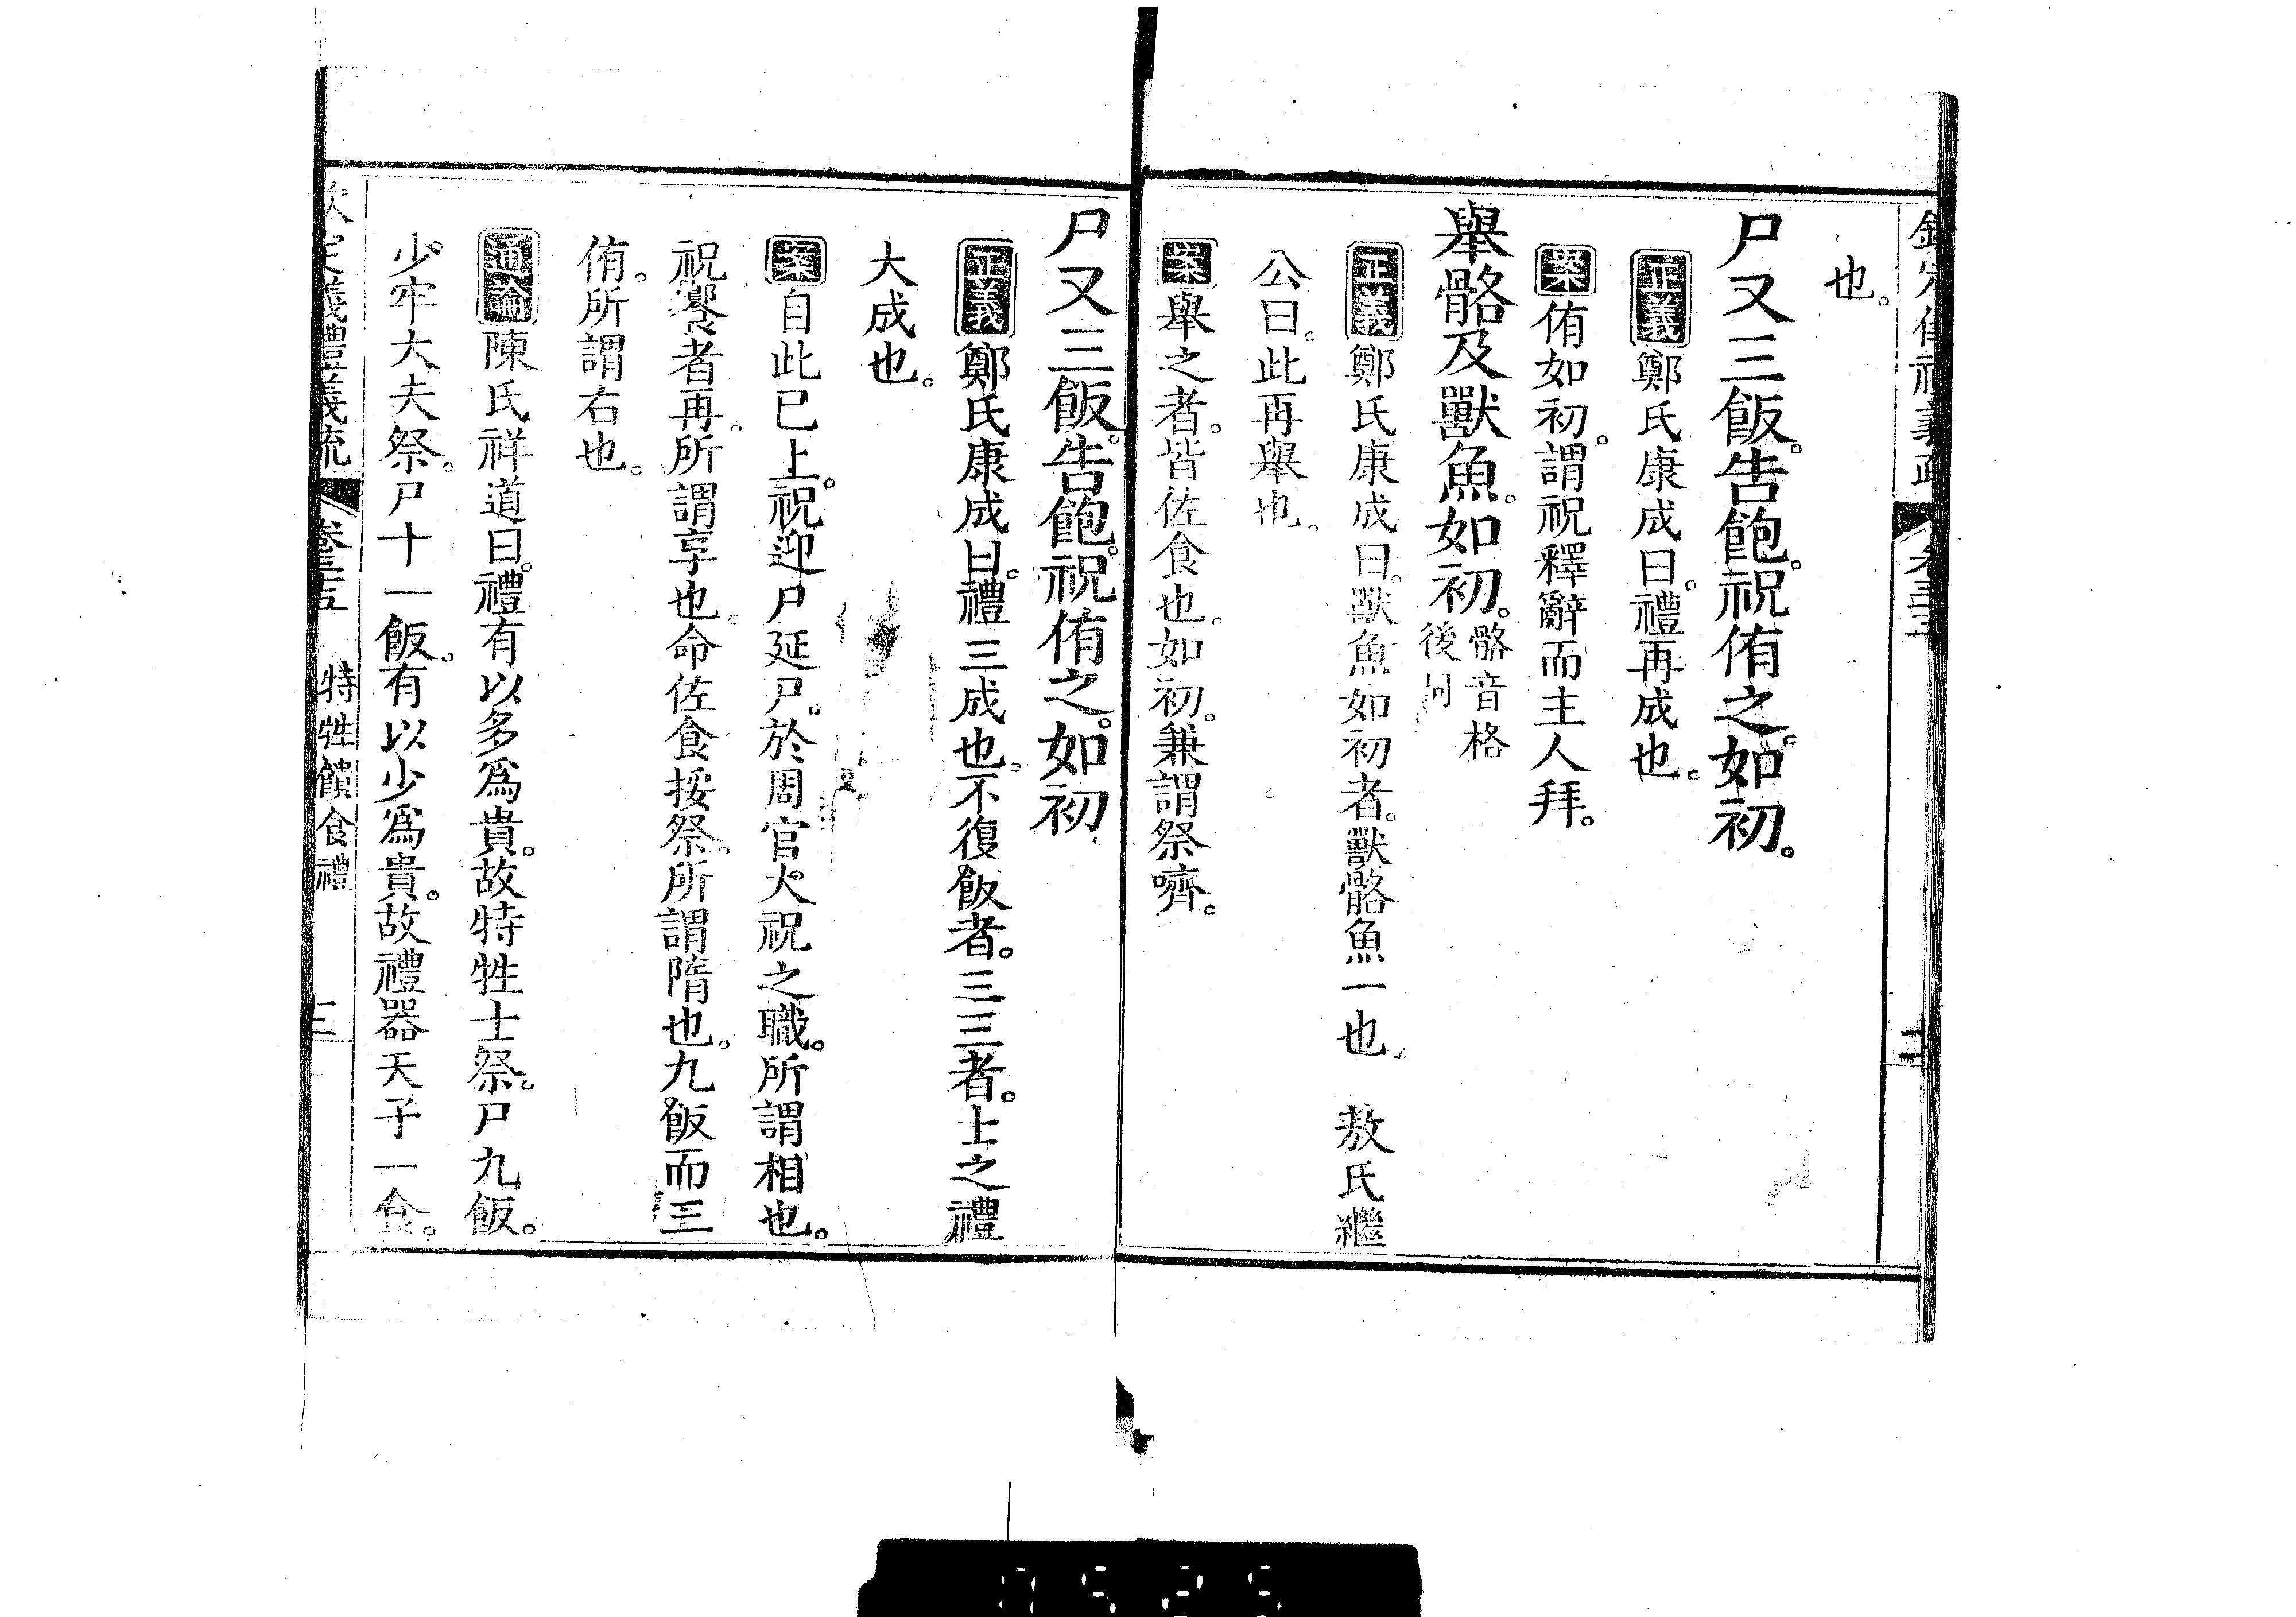 也。
尸又三飯。告飽。祝侑之。如初。
正義鄭氏康成曰。禮再成也。
案侑如初。謂祝釋辭而主人拜。
舉骼及獸魚。如初。骼音格後同
正義鄭氏康成曰。獸魚如初者。獸骼魚一也。 敖氏繼
公曰。此再舉也。
案舉之者。皆佐食也。如初。兼謂祭嚌。
尸又三飯。告飽。祝侑之。如初
正義鄭氏康成曰。禮三成也。不復飯者。三三者。上之禮
大成也。
案自此已上。祝迎尸延尸。於周官大祝之職。所謂相也。
祝饗者再。所謂享也。命佐食挼祭。所謂隋也。九飯而三
侑。所謂右也。
通論陳氏祥道曰。禮有以多爲貴。故特牲士祭。尸九飯。
少牢大夫祭。尸十一飯。有以少爲貴。故禮器天子一食。
欽定義禮義疏 卷三五 特牲饋食禮